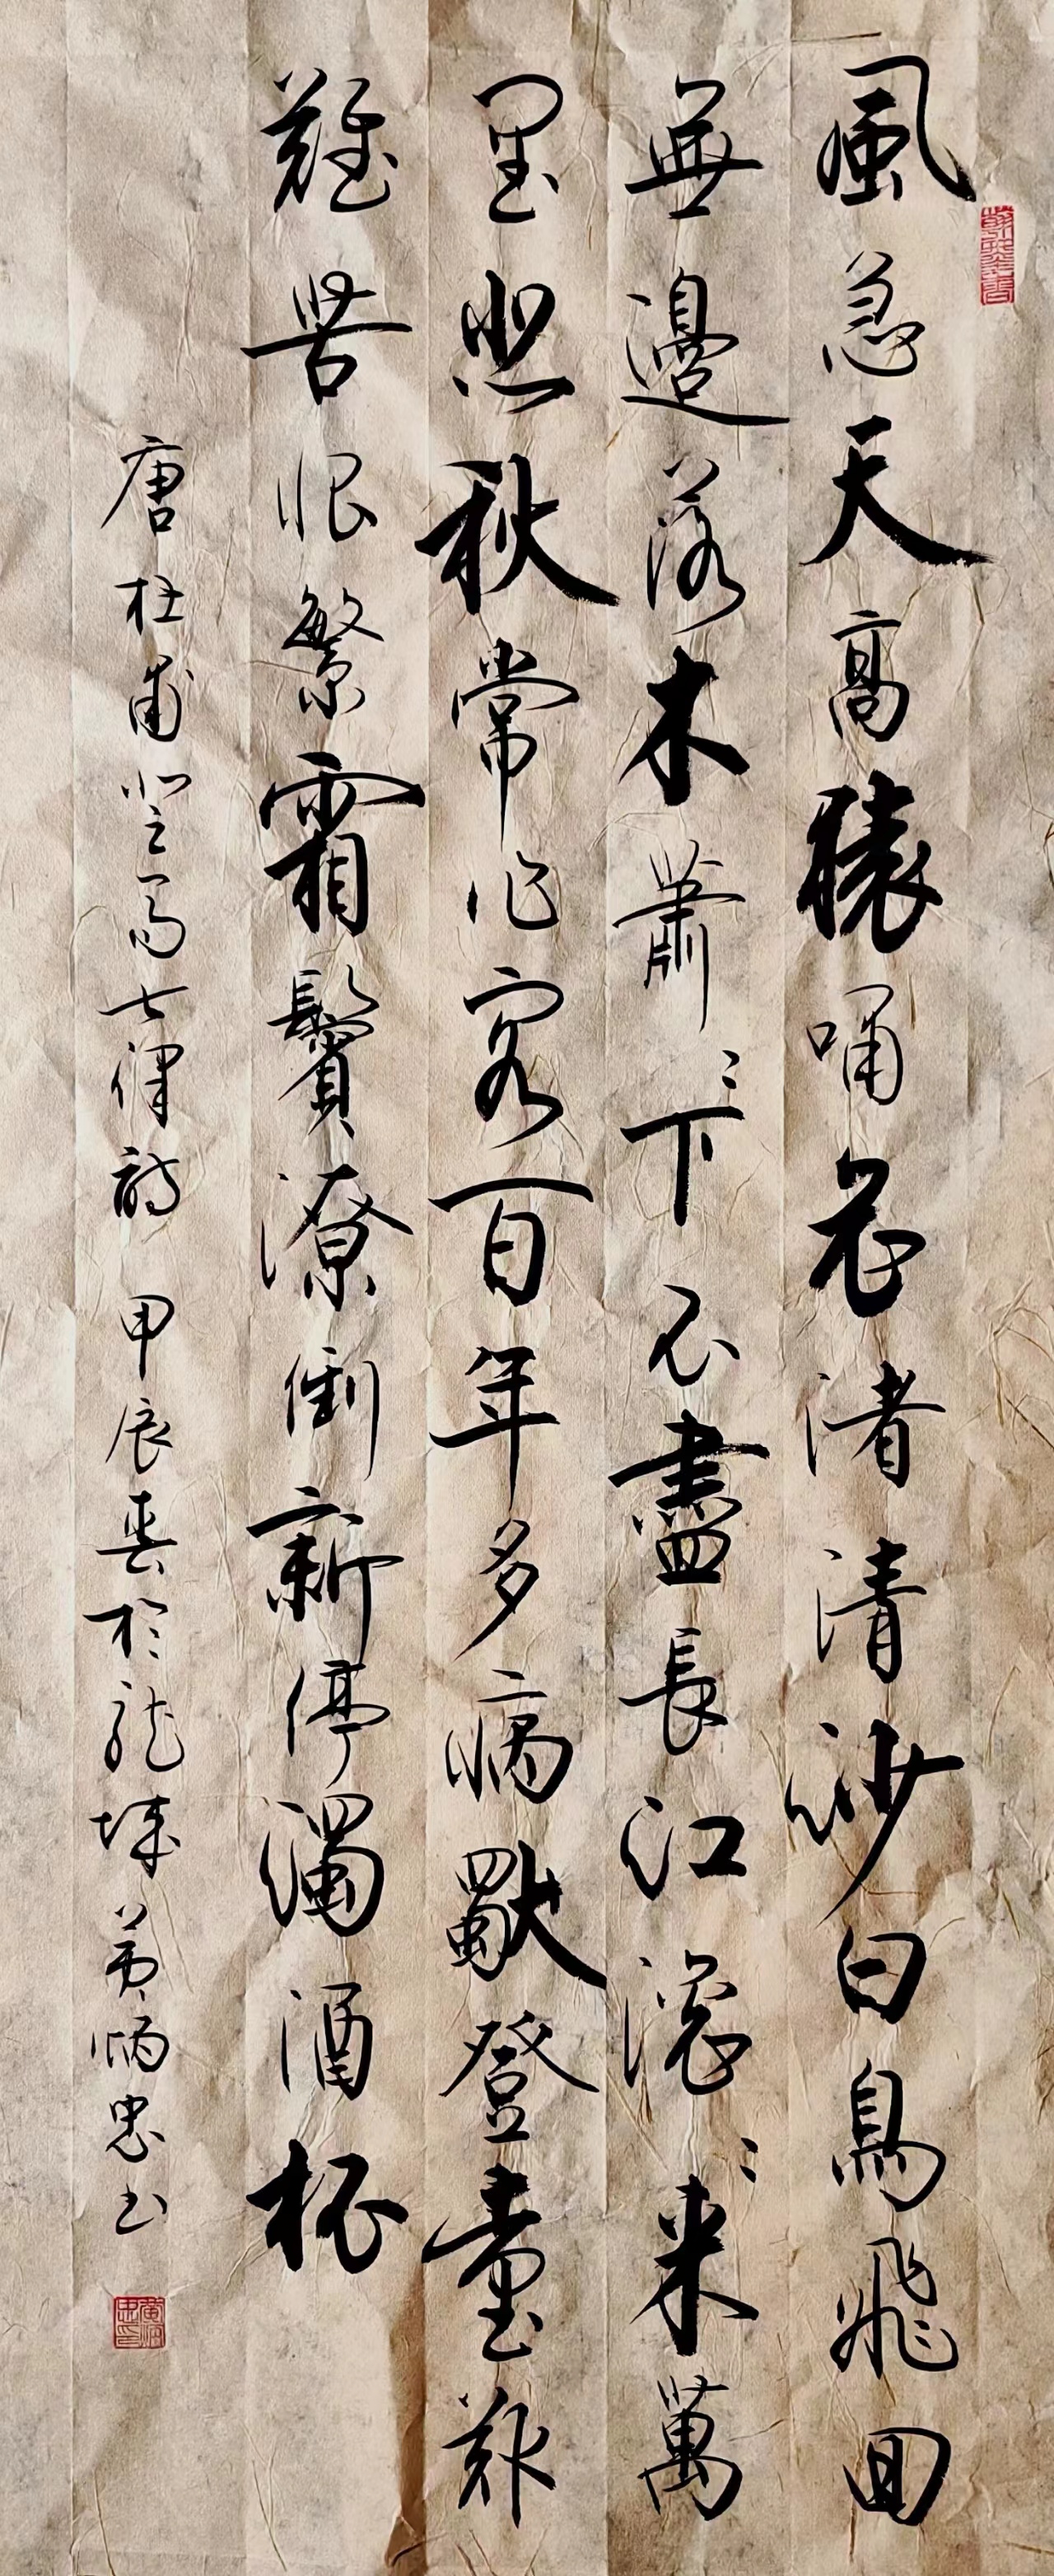 風急天高猿嘯哀渚清沙白鳥飛回
無邊落木蕭〻下不盡長江滾〻來萬
里悲秋常作客百年多病獨登臺艱
難苦恨繁霜鬢潦倒新停濁酒杯
唐杜甫登高七律詩 甲辰春於龍城黃炳忠書
黃炳忠印